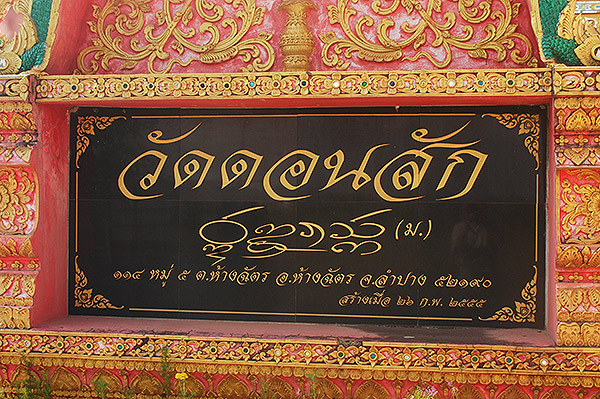 วัดดอนสัก
(ม.)
๑๑๔ หมู่ ๕ ต.ห้างฉัตร อ.ห้างฉัตร จ.ลำปาง ๕๒๑๙๐
สร้างเมื่อ ๒๖ ก.พ. ๒๕๕๕